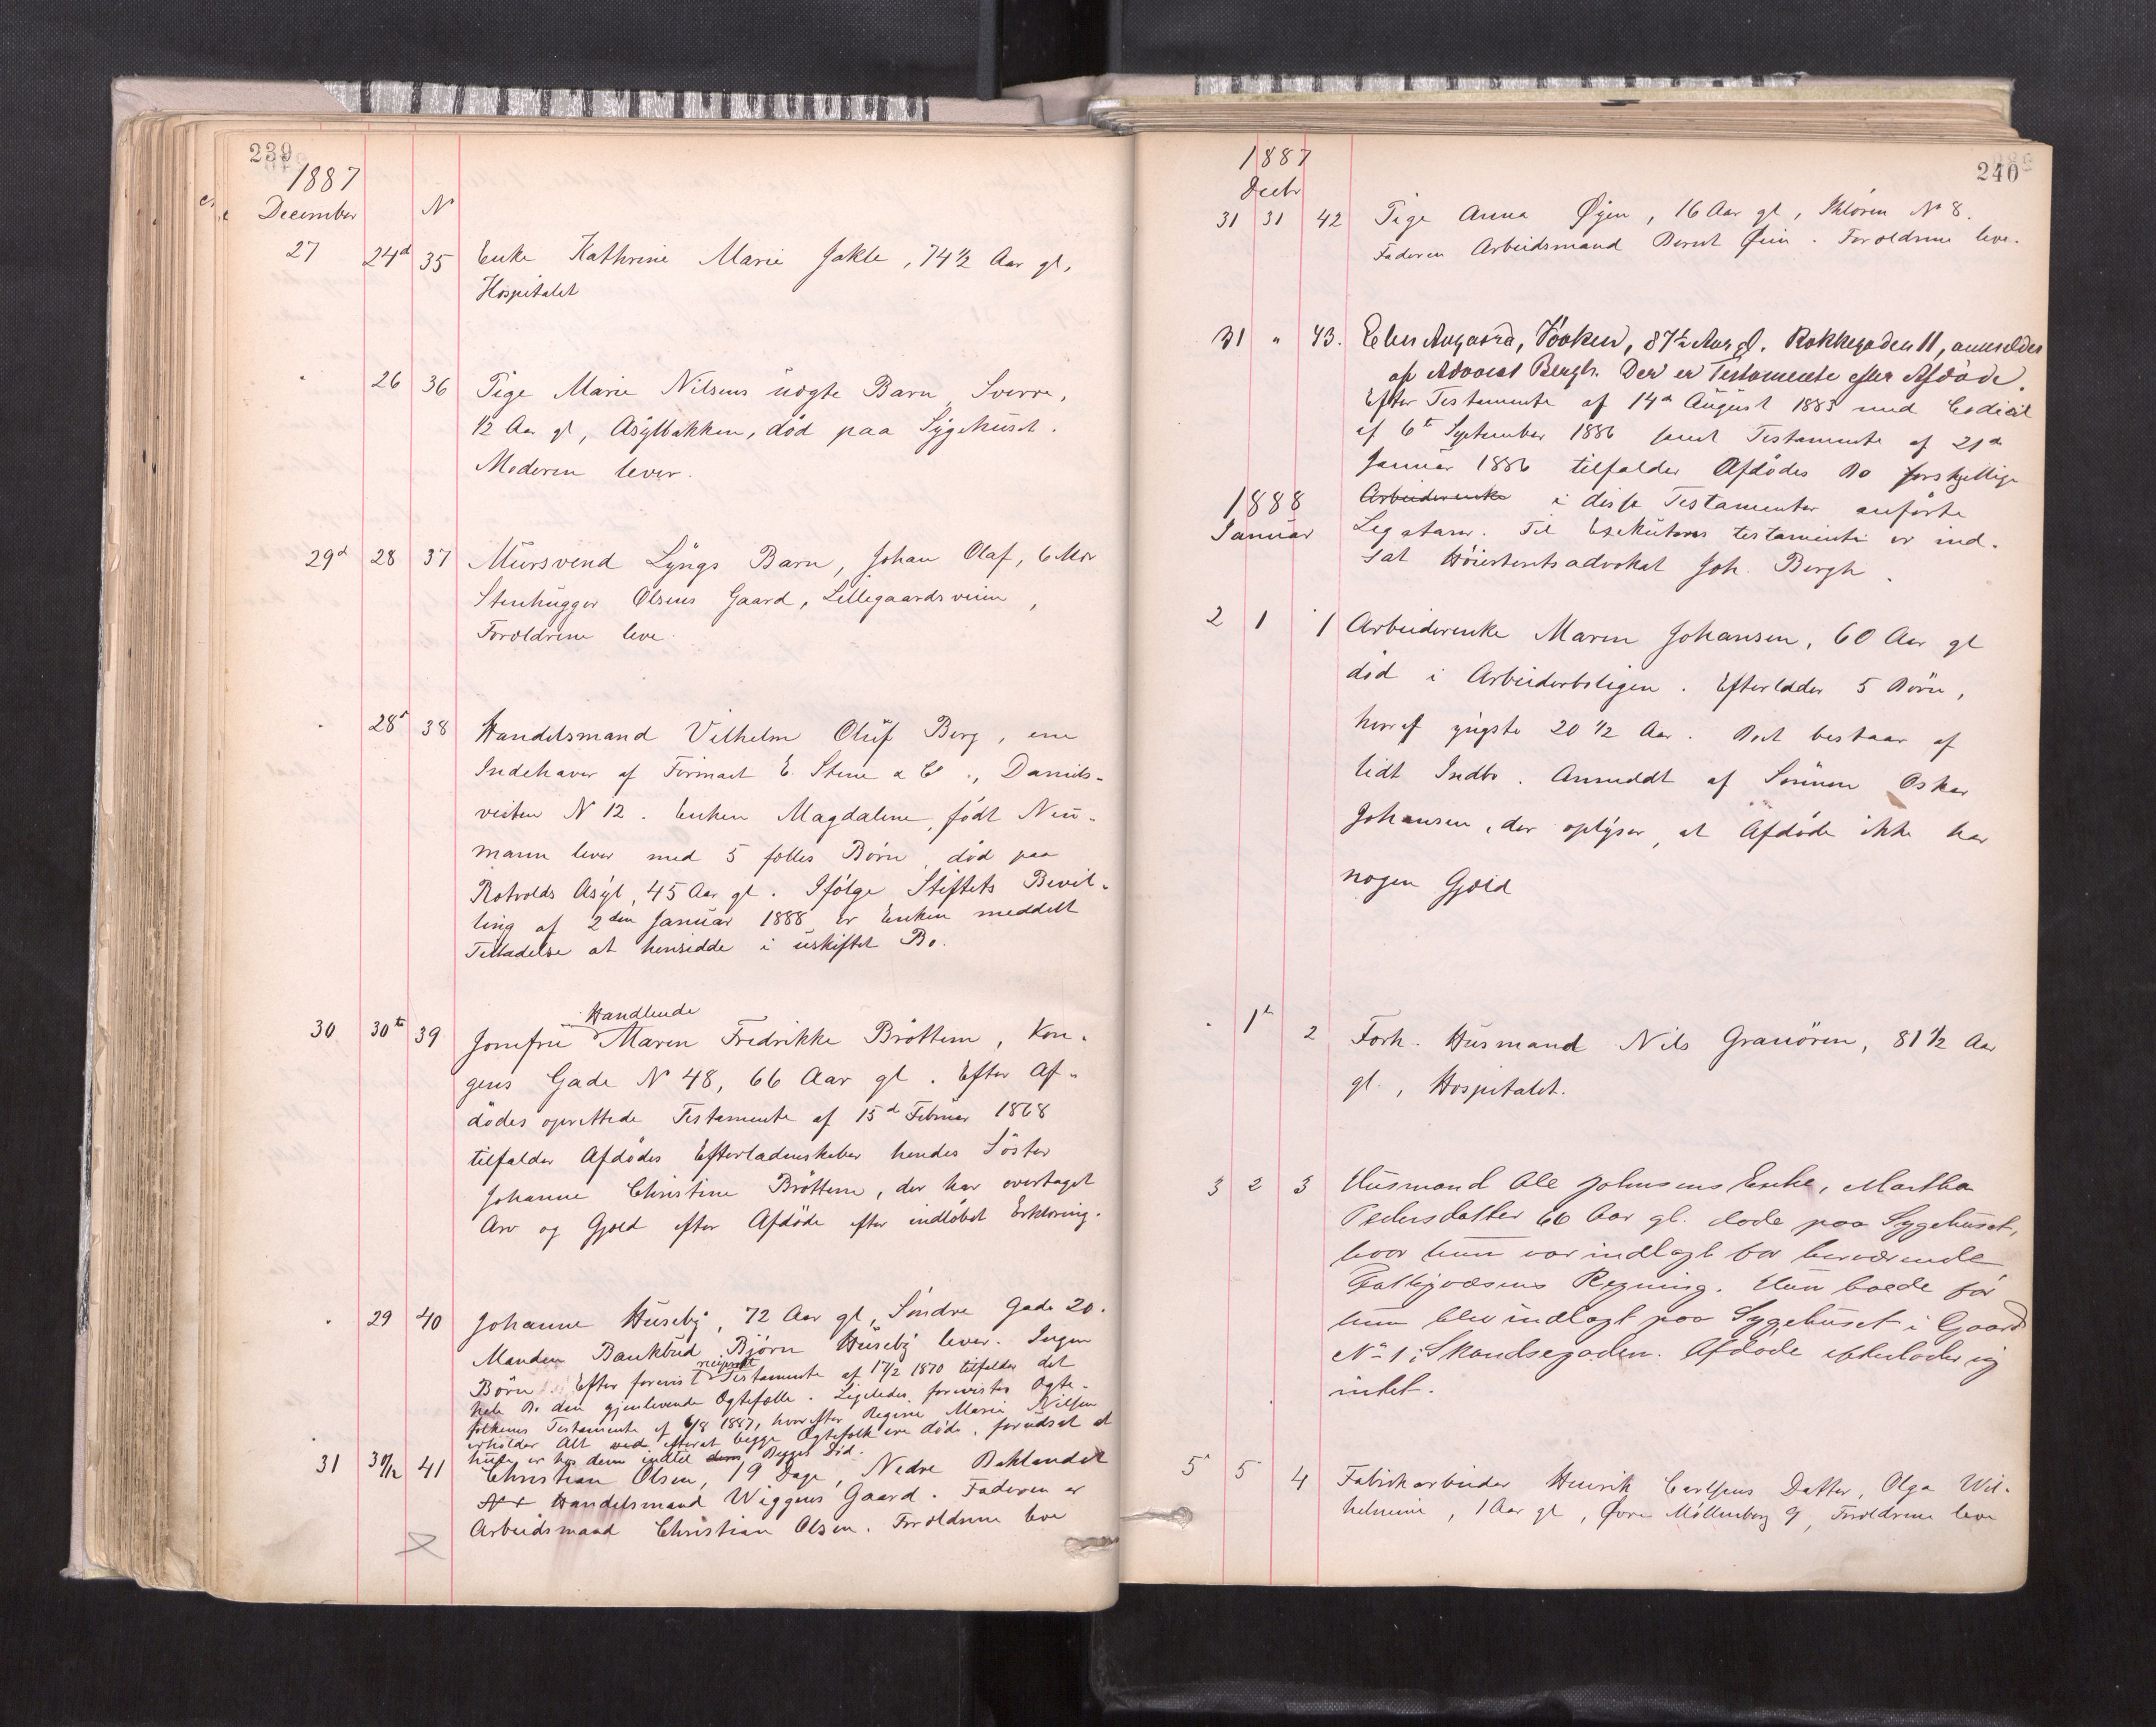 239
1887
December N
27 24d 35 Enke Kathrine Marie Jakle, 74 1/2 Aar gl,
Hospitalet
" 26 36 Pige Marie Nilsens uægte Barn Sverre,
1/2 Aar gl, Asylbakken, død paa Sygehuset.
Moderen lever.
29d 28 37 Mursvend Lyngs Barn, Johan Olaf, 6 Mdr
Stenhugger Olsens Gaard, Lillegaardsveien,
Forældrene leve.
" 28 38 Handelsmand Vilhelm Oluf Berg, ene
Indehaver af Firmaet E. Stene & Co., Daniels-
veiten N 12. Enken Magdalene, født Neu-
mann lever med 5 fælles Børn, død paa
Rotvolds Asyl, 45 Aar gl. Ifølge Stiftets Bevil-
ling af 2den Januar 1888 er Enken meddelt
Tilladelse at hensidde i uskiftet Bo.
Handlende
30 30te 39 Jomfru Maren Fredrikke Brøttem, Kon-
gens Gade N 48, 66 Aar gl. Efter Af-
dødes oprettede Testamente af 15d Februar 1868
tilfalder Afdødes Efterladenskaber hendes Søster
Johanne Christine Brøttem, der har overtaget
Arv og Gjæld efter Afdøde efter indløbet Erklæring.
" 29 40 Johanne Huseby, 72 Aar gl, Søndre Gade 20.
Manden Bankbud Bjørn Huseby lever. Ingen
Børn. Efter forevist reciprokt Testamente af 17/2 1870 tilfalder det
hele Bo den gjenlevende Ægtefælle. Ligeledes forevistes Ægte-
folkenes Testamente af 6/8 1887, hvorefter Regine Marie Nilsen
erholder Alt ved efterat begge Ægtefolk ere døde, forudsat at
hun er hos dem indtil deres Begges Død.
31 30/12 41 Christian Olsen, 19 Dage, Nedre Baklandet
N+ Handelsmand Wiggens Gaard. Faderen er
Arbeidsmand Christian Olsen. Forældrene leve
240
1887
Decbr
31 31 42 Pige Anna Øyen, 16 Aar gl, Ihløren N 8.
Faderen Arbeidsmand Bernt Øien. Forældrene leve.
31 " 43. Elen Aagaard, Frøken, 87 1/2 Aar gl. Bakkegaden 11, anmeldes
af Advocat Bergh. Der er Testamente efter Afdøde.
Efter Testamente af 14d August 1883 med Codicil
af 6te September 1886 samt Testamente af 21d
Januar 1886 tilfalder Afdødes Bo forskjellige
Arbeiderenke i disse Testamenter anførte
Legatarer. Til Exekutores testamenti er ind-
sat Høiesteretsadvokat Joh. Bergh.
1888
Januar
2 1 1 Arbeiderenke Maren Johansen, 60 Aar gl
død i Arbeiderboligen. Efterlader 5 Børn,
hvoraf yngste 20 1/2 Aar. Boet bestaar af
lidt Indbo. Anmeldt af Sønnen Oskar
Johansen, der oplyser, at Afdøde ikke har
nogen Gjæld
" 1 2 Forh. Husmand Nils Granøren, 81 1/2 Aar
gl., Hospitalet.
3 2 3 Husmand Ole Johnsens Enke, Martha
Pedersdatter 66 Aar gl. døde paa Sygehuset,
hvor hun var indlagt for herværende
Fattigvæsens Regning. Hun boede før
hun blev indlagt paa Sygehuset i Gaard
No 1 i Skandsegaden. Afdøde efterlader sig
intet.
5 5 4 Fabrikarbeider Henrik Carlsens Datter, Olga Wil-
helmine, 1 Aar gl, Øvre Møllenberg 9, Forældrene leve